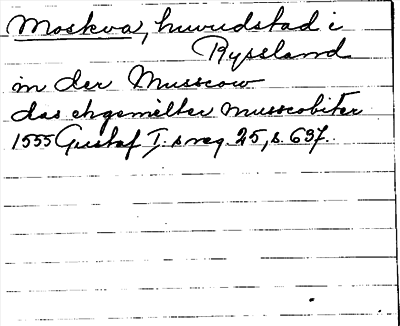 Moskva, huvudstad i
Ryssland
in der Musscow
das ehgemelter Musscobiter
1555 Gustaf I:s reg. 25, s. 637.